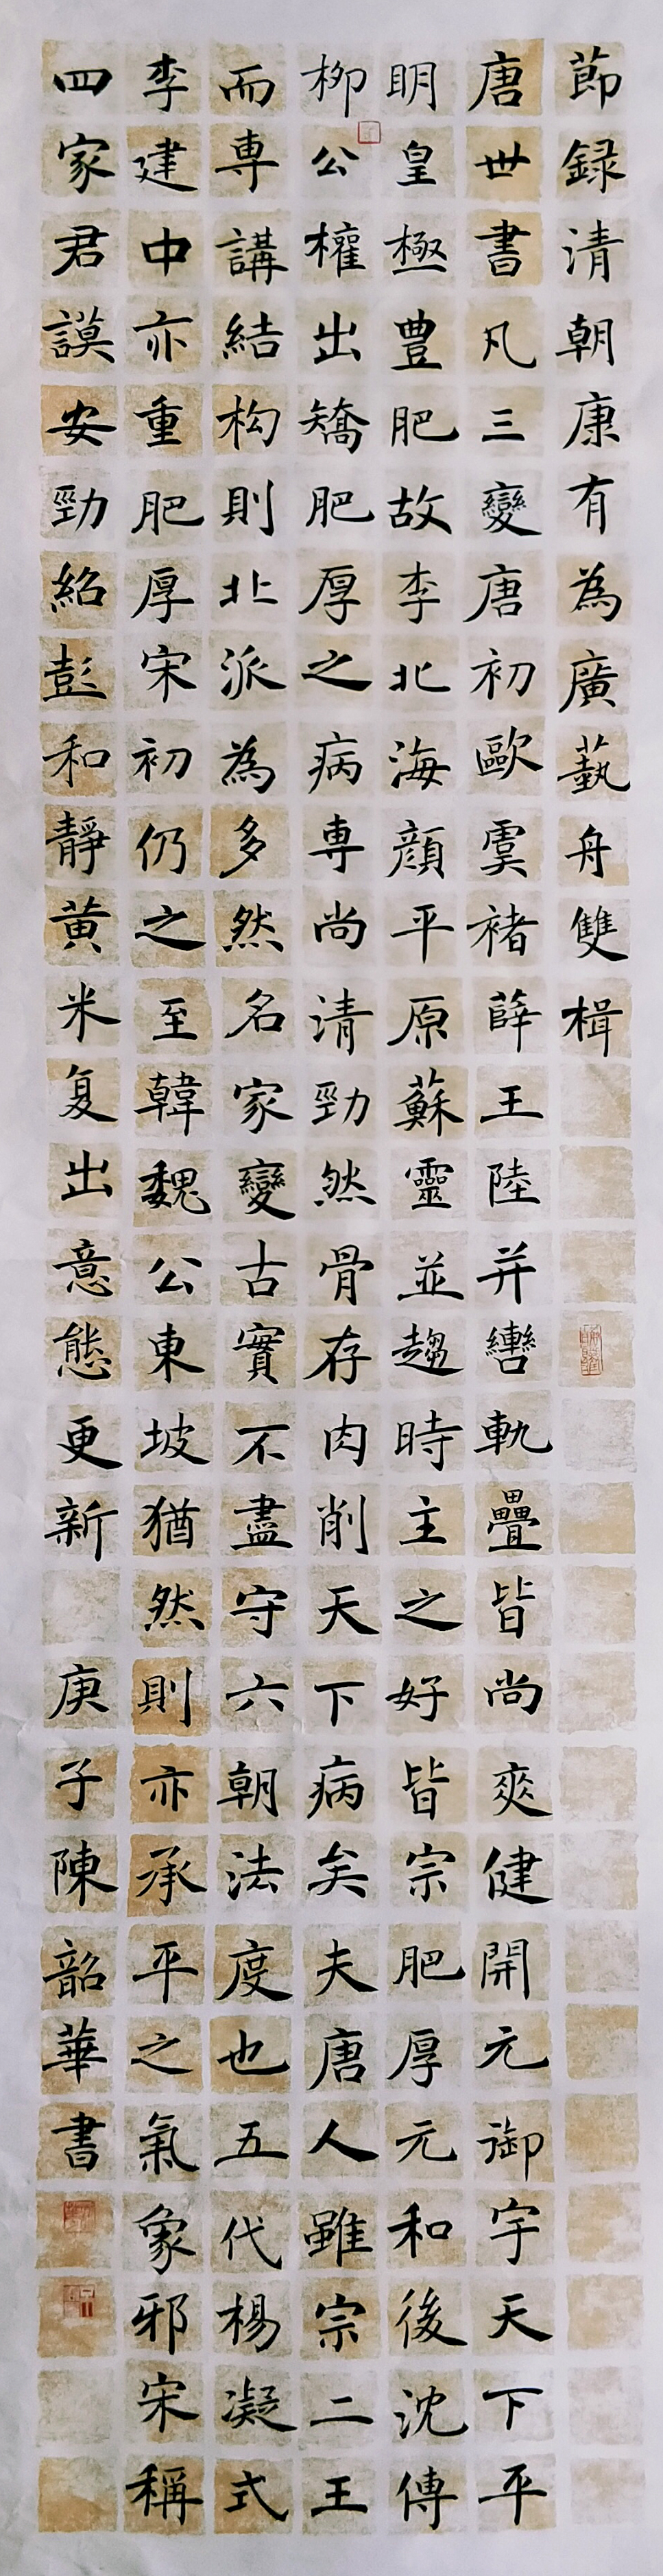 節録清朝康有為廣藝舟雙楫
唐世書凡三變唐初歐虞褚薛王陸并轡軌疊皆尚爽健開元御宇天下平
明皇極豊肥故李北海顔平原蘇靈並趨時主之好皆宗肥厚元和後沈傳
柳公權出矯肥厚之病専尚清勁然骨存肉削天下病矣夫唐人雖宗二王
而専講結构則北派為多然名家變古實不盡守六朝法度也五代楊凝式
李建中亦重肥厚宋初仍之至韓魏公東坡猶然則亦承平之氣象邪宋稱
四家君謨安勁紹彭和靜黄米复出意態更新
庚子陳韶華書